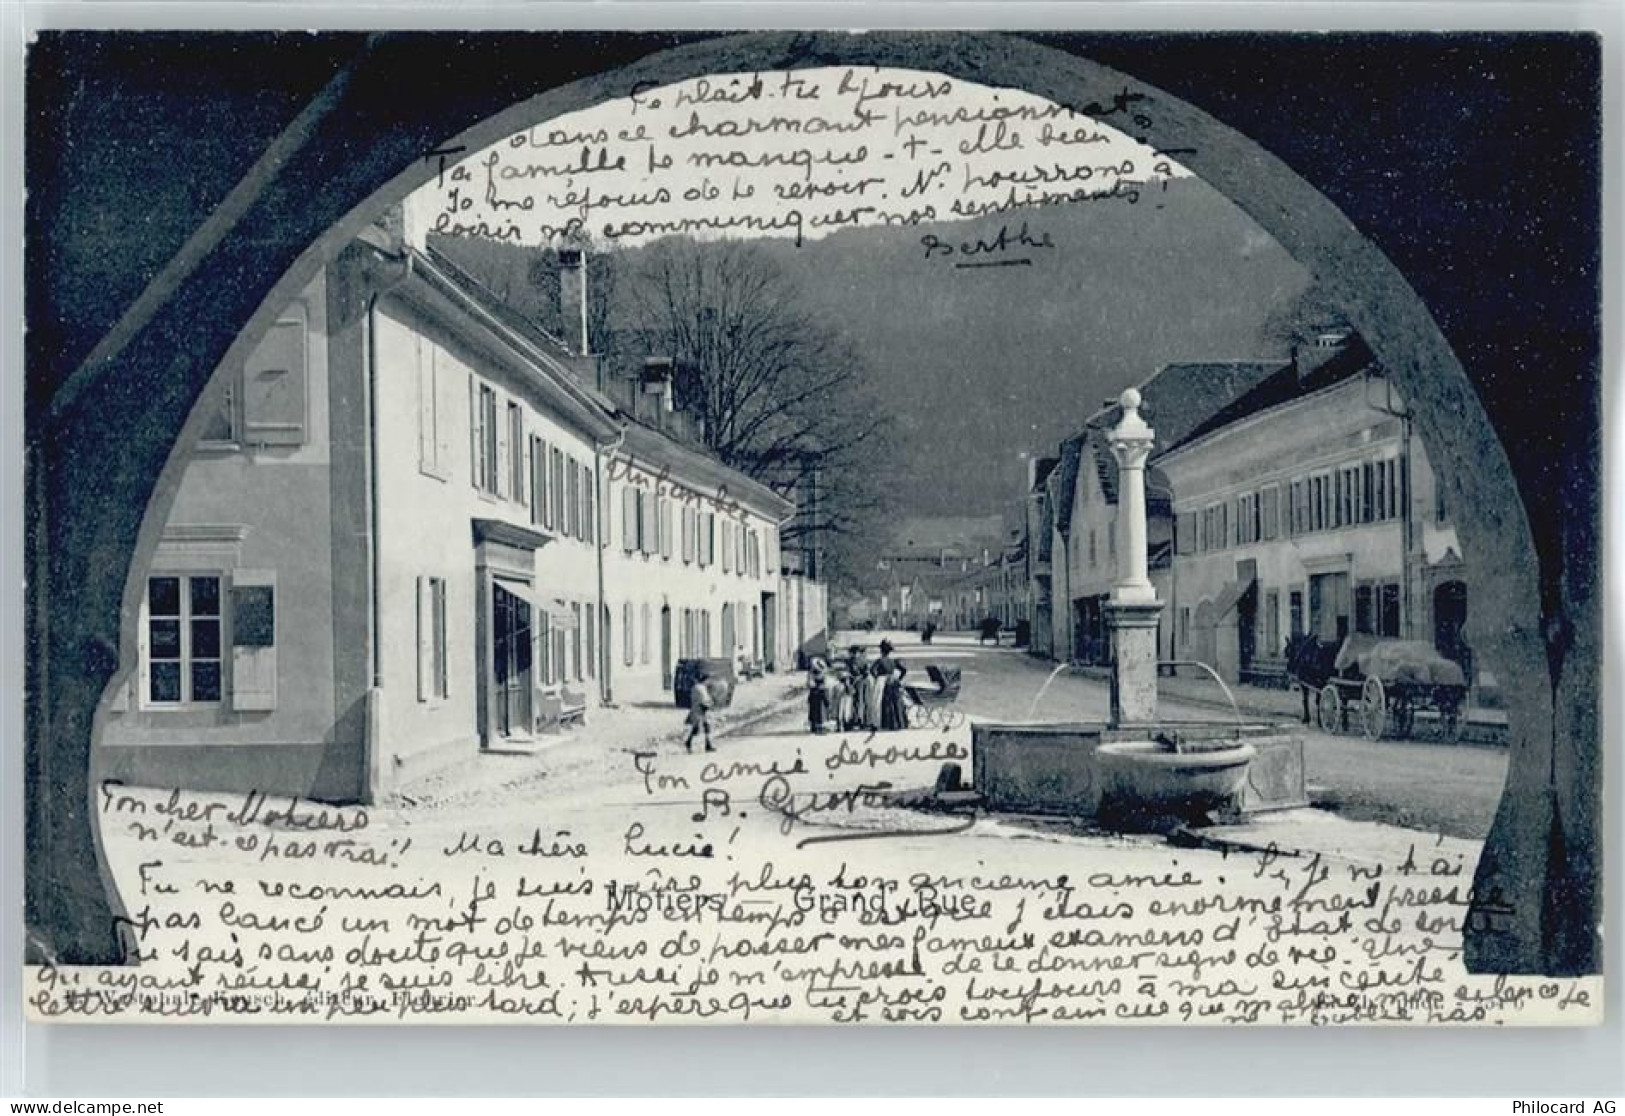 Te plaît-tu tjours
dans ce charmant pensionnat
Ta famille te manque-t-elle bien
Je me réjouis de te revoir. Ns. pourrons à
loisir ns communiquer nos sentiments!
Berthe
Ton amie dévouée
B.
Ton cher Motiers
n'est-ce pas vrai!
Ma chère Lucie!
Tu ne reconnais, je suis sûre plus ton ancienne amie. Si, je ne t'ai
Motiers — Grand Rue
pas lancé un mot de temps en temps c'est que j'étais énormement pressée
Tu sais sans doute que je viens de passer mes fameux examens d'État de sorte
qu'ayant réussi je suis libre. Aussi je m'empresse de te donner signe de vie. Une
lettre suivra un peu plus tard; j'espère que tu crois toujours à ma sincerité
et sois convaincue que malgré mon silence je
ne t'oublie pas.
Westphale-Reusch, éditeur, Fleurier
Philocard AG